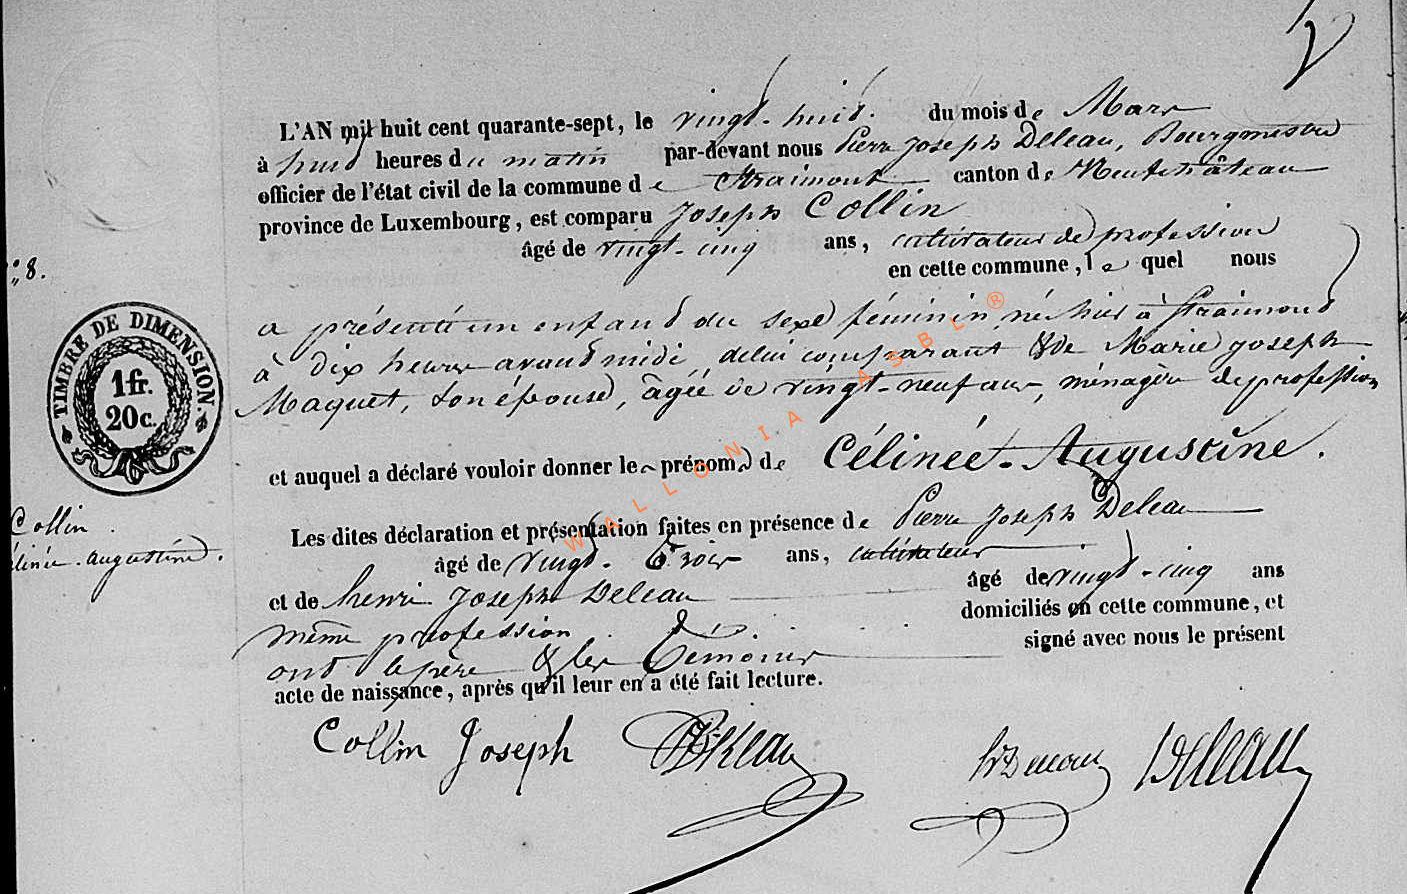 L'AN mil huit cent quarante-sept, le vingt-huit. du mois de Mars
à huit heures du matin par-devant nous Pierre Joseph Deleau, Bourgmestre
officier de l'état civil de la commune de Straimont canton de Neufchâteau
province de Luxembourg, est comparu Joseph Collin
âgé de vingt-cinq ans, cultivateur de profession
en cette commune, le quel nous
8.
a présenté un enfant du sexe féminin, né hier à Straimont
à dix heures avant midi, de lui comparant & de Marie Joseph
Maquet, son épouse, âgée de vingt-neuf ans, ménagère de profession
TIMBRE DE DIMENSION.
1 fr.
20c.
et auquel a déclaré vouloir donner les prénoms de Célinée-Augustine.
Les dites déclaration et présentation faites en présence de Pierre Joseph Deleau
âgé de vingt-trois ans, cultivateur
et de henri Joseph Deleau âgé de vingt-cinq ans
même profession domiciliés en cette commune, et
ont le père & les témoins signé avec nous le présent
acte de naissance, après qu'il leur en a été fait lecture.
Collin
élinée-augustine.
Collin Joseph Deleau
WALLONIA ASBL ®